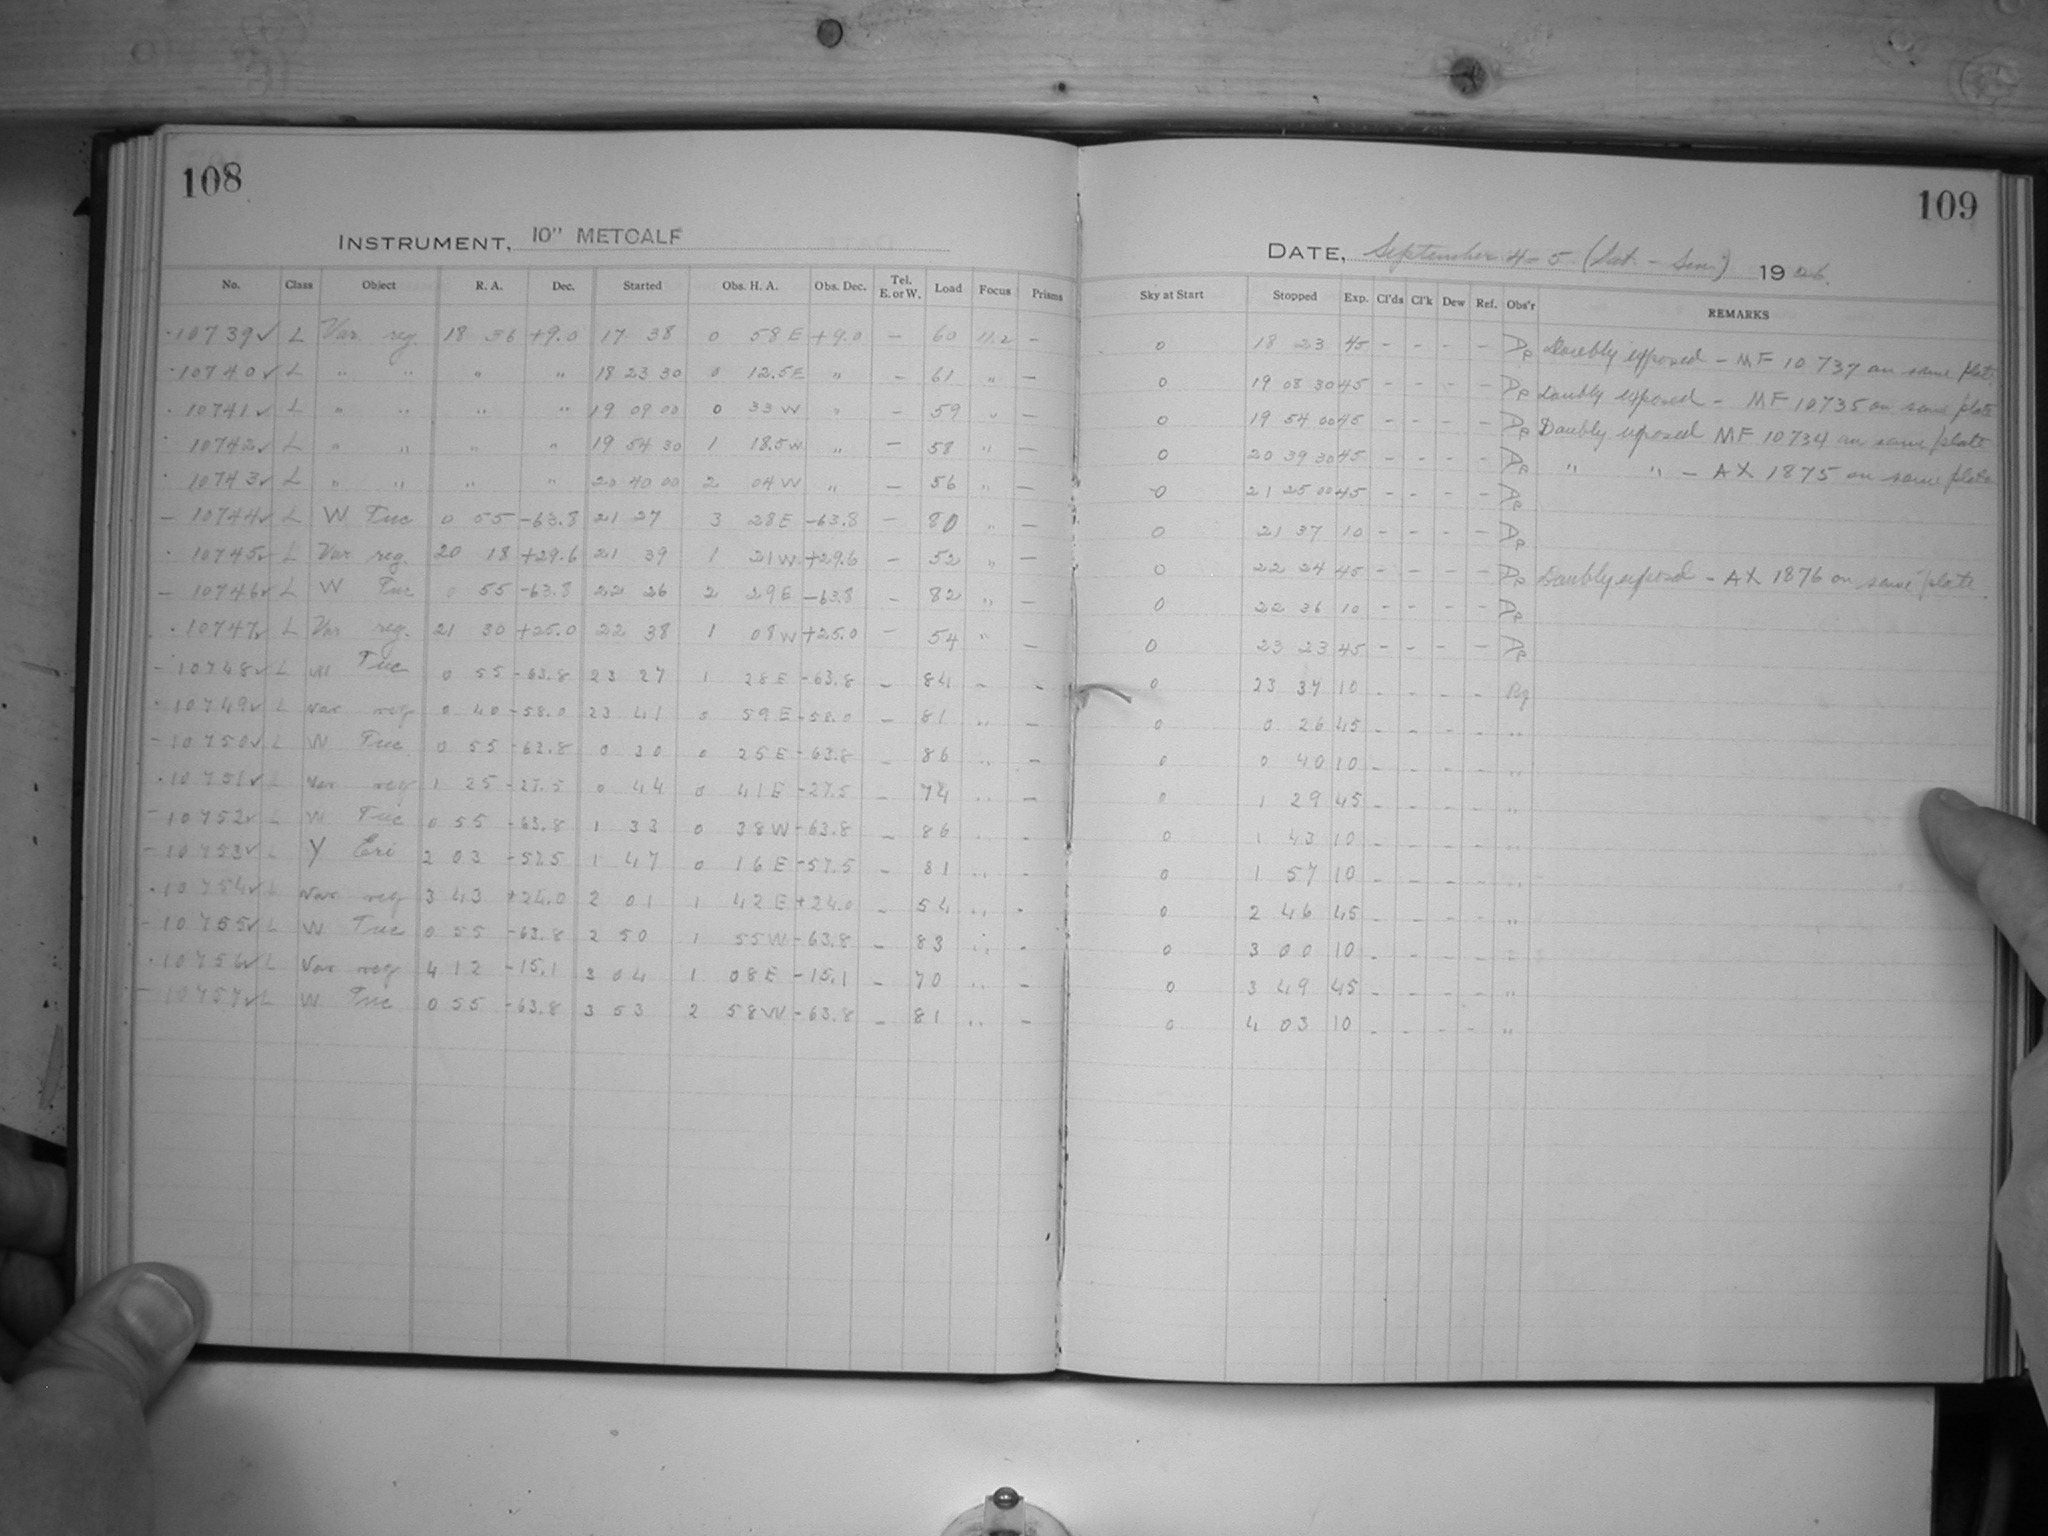 108
109
INSTRUMENT, 10" METCALF
DATE, September 4-5 (Sat - Sun) 19
No. Class Object R. A. Dec. Started Obs. H. A. Obs. Dec. Tel. E. or W. Load Focus Prisms Sky at Start Stopped Exp. Cl'ds Cl'k Dew Ref. Obs'r REMARKS
10739✓ L Var. reg. 18 36 +9.0 17 38 0 58 E +9.0 - 60 11.2 - 0 18 23 45 - - - - Dp Doubly exposed - MF 10737 on same plate
10740✓ L " " " " 18 23 30 0 12.5E " - 61 " - 0 19 08 30 45 - - - - Dp Doubly exposed - MF 10735 on same plate
10741✓ L " " " " 19 09 00 0 33 W " - 59 " - 0 19 54 00 45 - - - - Dp Doubly exposed MF 10734 on same plate
10742✓ L " " " " 19 54 30 1 18.5W " - 58 " - 0 20 39 30 45 - - - - Dp " " - AX 1875 on same plate
10743✓ L " " " " 20 40 00 2 04 W " - 56 " - 0 21 25 00 45 - - - - Dp
- 10744✓ L W Tuc 0 55 -63.8 21 27 3 28 E -63.8 - 80 " - 0 21 37 10 - - - - Dp
10745✓ L Var reg. 20 18 +29.6 21 39 1 21 W +29.6 - 52 " - 0 22 24 45 - - - - Dp Doubly exposed - AX 1876 on same plate
- 10746✓ L W Tuc 0 55 -63.8 22 26 2 29 E -63.8 - 82 " - 0 22 36 10 - - - - Dp
10747✓ L Var reg. 21 30 +25.0 22 38 1 08 W +25.0 - 54 " - 0 23 23 45 - - - - Dp
- 10748✓ L W Tuc 0 55 -63.8 23 27 1 28 E -63.8 - 84 " - 0 23 37 10 - - - -
10749✓ L Var reg 0 40 -58.0 23 41 0 59 E -58.0 - 81 " - 0 0 26 45 - - - - "
- 10750✓ L W Tuc 0 55 -63.8 0 30 0 25 E -63.8 - 86 " - 0 0 40 10 - - - - "
10751✓ L Var reg 1 25 -27.5 0 44 0 41 E -27.5 - 74 " - 0 1 29 45 - - - - "
- 10752✓ L W Tuc 0 55 -63.8 1 33 0 38 W -63.8 - 86 " - 0 1 43 10 - - - - "
- 10753✓ L Y Eri 2 03 -57.5 1 47 0 16 E -57.5 - 81 " - 0 1 57 10 - - - - "
10754✓ L Var reg 3 43 +24.0 2 01 1 42 E +24.0 - 54 " - 0 2 46 45 - - - - "
- 10755✓ L W Tuc 0 55 -63.8 2 50 1 55 W -63.8 - 83 " - 0 3 00 10 - - - - "
10756✓ L Var reg 4 12 -15.1 3 04 1 08 E -15.1 - 70 " - 0 3 49 45 - - - - "
- 10757✓ L W Tuc 0 55 -63.8 3 53 2 58 W -63.8 - 81 " - 0 4 03 10 - - - - "